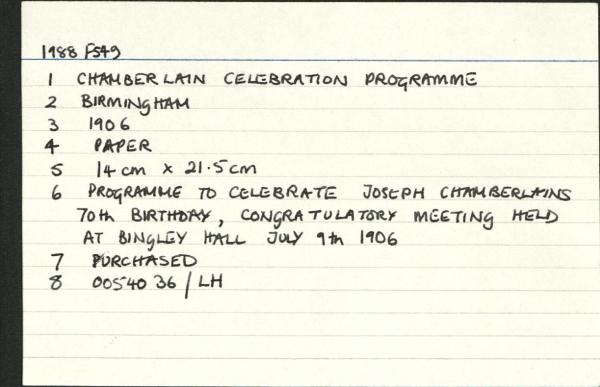 1988 F549
1 CHAMBERLAIN CELEBRATION PROGRAMME
2 BIRMINGHAM
3 1906
4 PAPER
5 14cm x 21.5cm
6 PROGRAMME TO CELEBRATE JOSEPH CHAMBERLAINS
70th BIRTHDAY, CONGRATULATORY MEETING HELD
AT BINGLEY HALL JULY 9th 1906
7 PURCHASED
8 00540 36 / LH